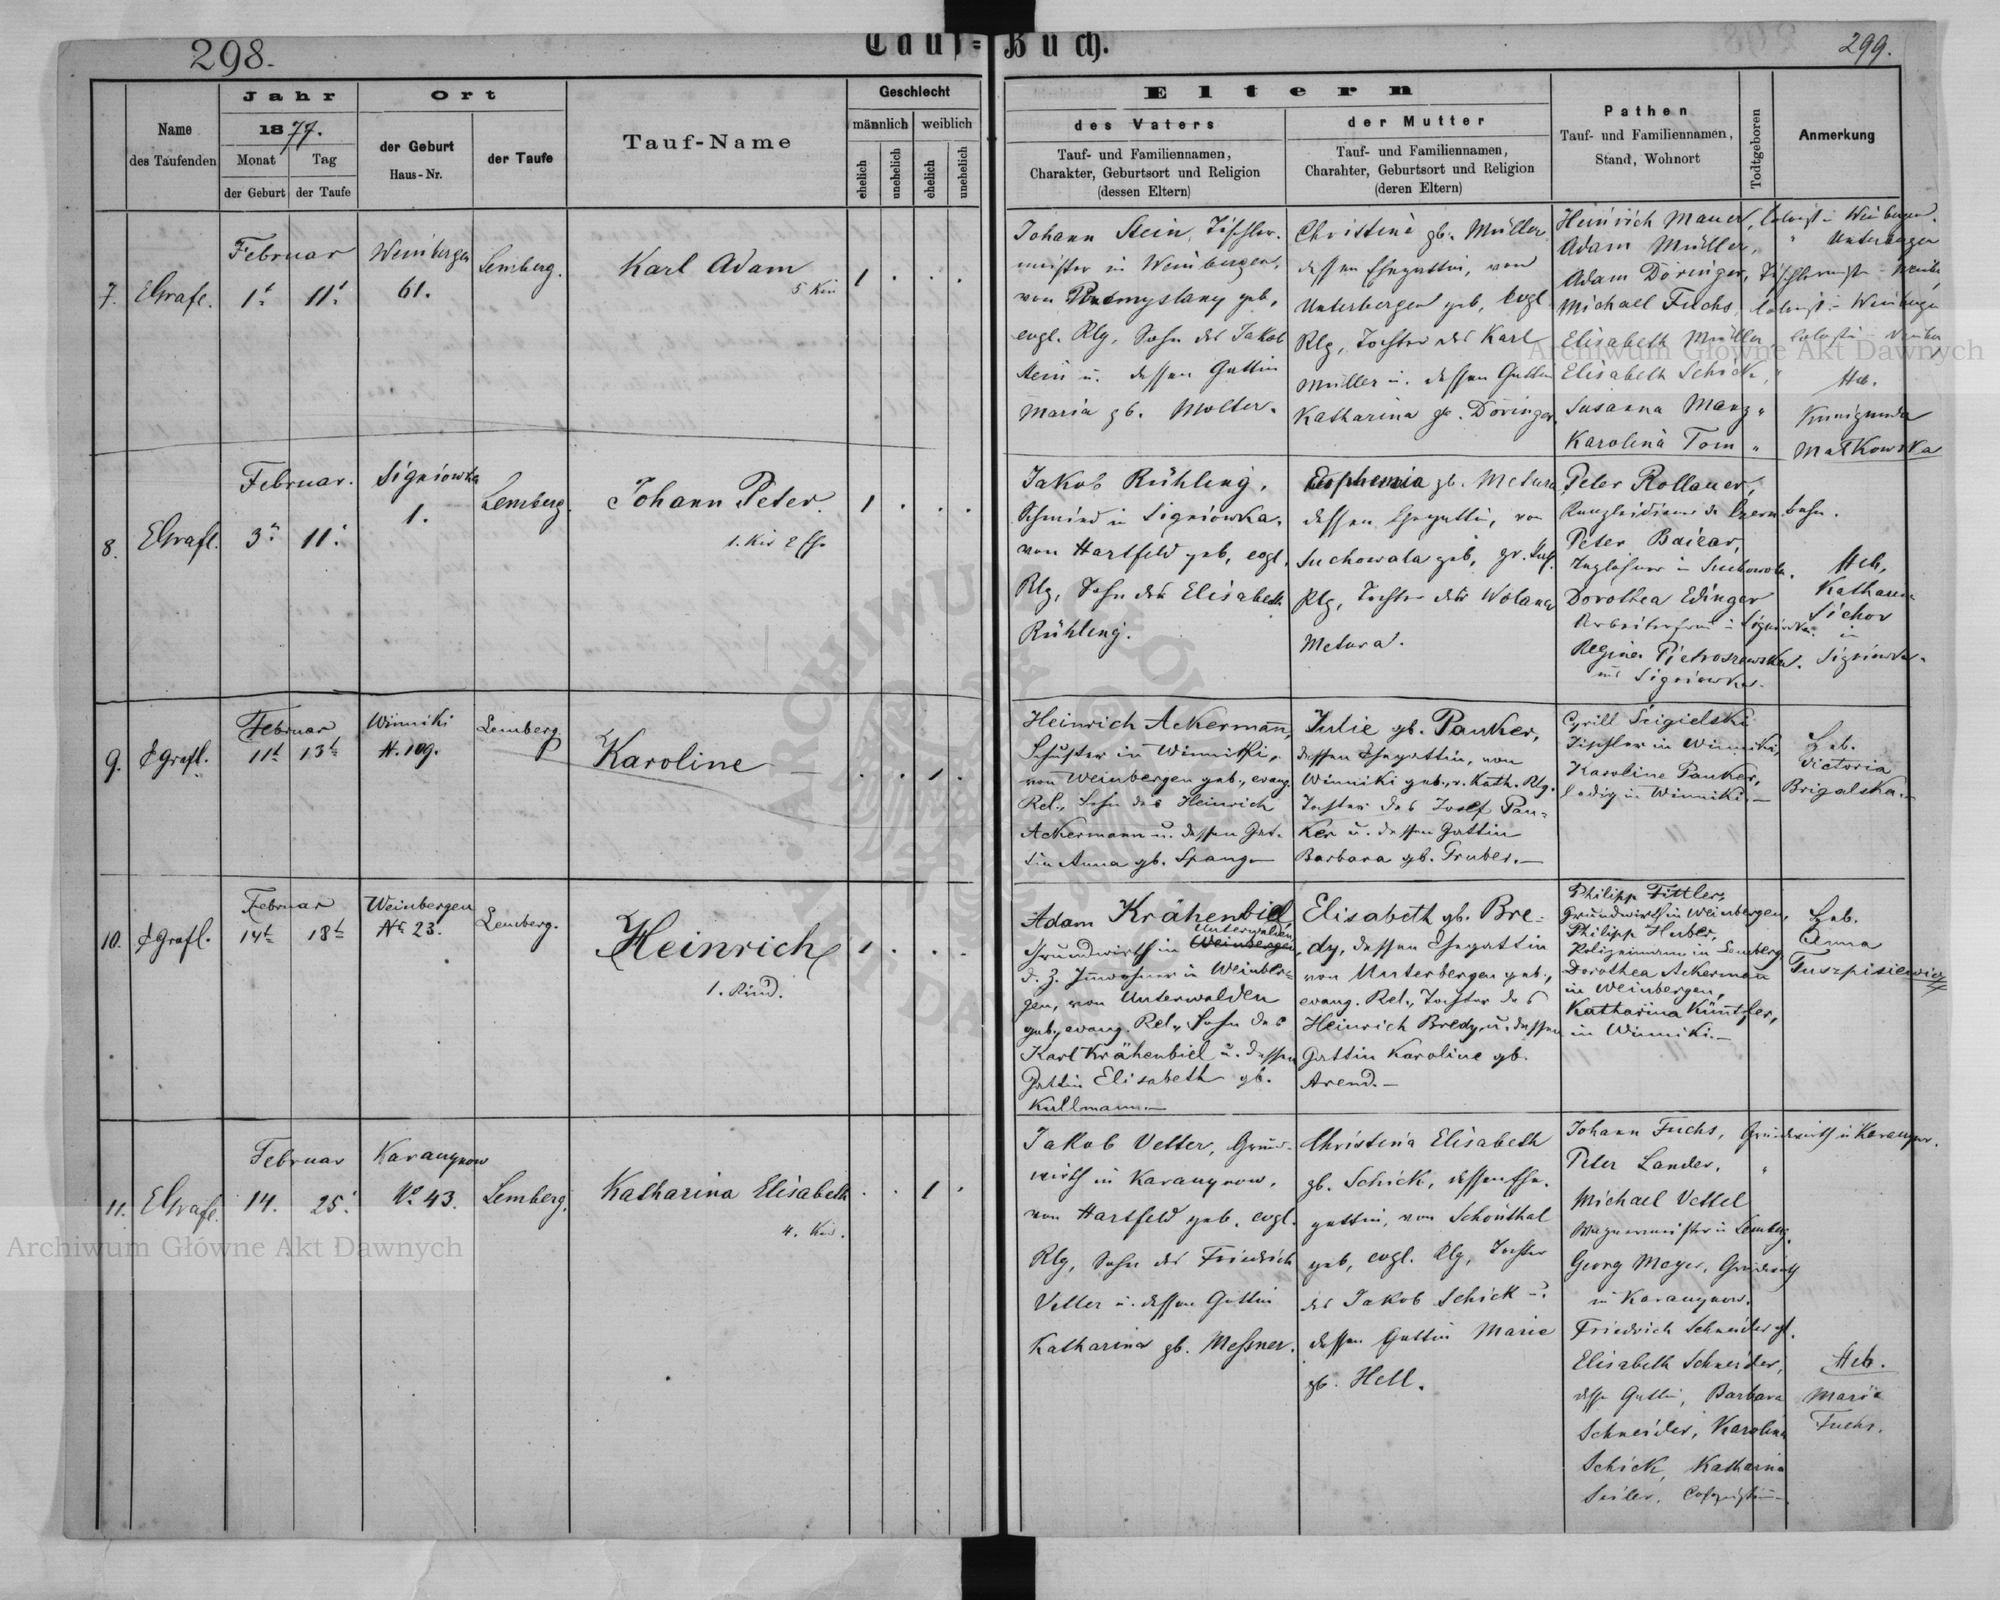 298.
Tauf-Buch.
299.
Name
des Taufenden
Jahr
1877.
Monat
Tag
der Geburt
der Taufe
Ort
der Geburt
Haus-Nr.
der Taufe
Tauf-Name
Geschlecht
männlich
weiblich
ehelich
unehelich
ehelich
unehelich
Eltern
des Vaters
Tauf- und Familiennamen,
Charakter, Geburtsort und Religion
(dessen Eltern)
der Mutter
Tauf- und Familiennamen,
Charahter, Geburtsort und Religion
(deren Eltern)
Pathen
Tauf- und Familiennamen,
Stand, Wohnort
Todtgeboren
Anmerkung
7.
EGrafl.
Februar
1t
11t
Weinbergen
61.
Lemberg.
Karl Adam
5 Kin
1 . . .
Johann Stein, Tischler-
meister in Weinbergen,
von Przemyslany geb,
evgl. Rlg, Sohn des Jakob
Stein u. dessen Gattin
Maria gb. Molter.
Christina gb. Müller
dessen Ehegattin, von
Unterbergen geb, evgl
Rlg, Tochter des Karl
Müller u. dessen Gattin
Katharina gb. Döringer
Heinrich Mauer,
Adam Müller, " Unterbergen
Adam Döringer,
Michael Fuchs,
Elisabeth Müller
Elisabeth Schick, "
Susanna Manz "
Karolina Tom "
Heb.
Kunigunda
Matkowska
8.
EGrafl.
Februar.
3t
11t
Signiowka
1.
Lemberg.
Johann Peter.
1. Kin 2 Ehe
1 . . .
Jakob Rühling,
Schmied in Signiowka,
von Hartfeld geb, evgl.
Rlg, Sohn der Elisabeth
Rühling.
Euphemia gb. Metura
dessen Ehegattin, von
Suchowola geb, gr.
Rlg, Tochter des
Metura.
Peter Rollauer,
Kanzleidiener d. Czern. bahn.
Peter Baiear,
Taglöhner in Suchowola.
Dorothea Edinger
Arbeitersfrau in Signiowka.
Regina Pietroszewska.
aus Signiowka.
Heb.
Katharina
Sichor
in
Signiowka.
9.
EGrafl.
Februar
11t
13t
Winniki
N. 109.
Lemberg.
Karoline
. . 1 .
Heinrich Ackermann,
Schuster in Winniki,
von Weinbergen geb., evang.
Rel., Sohn des Heinrich
Ackermann u. dessen Gat-
tin Anna gb. Spang.—
Julie gb. Panker,
dessen Ehegattin, von
Winniki geb., r. kath. Rlg.
Tochter des Josef Pan-
ker u. dessen Gattin
Barbara gb. Gruber.—
Cyrill Scigielski
Tischler in Winniki,
Karoline Panker,
ledig in Winniki.—
Heb.
Victoria
Brigalska.—
10.
EGrafl.
Februar
14t
18t
Weinbergen
Nr 23.
Lemberg.
Heinrich
1. Kind.
1 . . .
Adam Krähenbiel,
Unterwalden
Grundwirth in Weinbergen,
d. Z. Inwohner in Weinber-
gen, von Unterwalden
geb., evang. Rel., Sohn des
Karl Krähenbiel u. dessen
Gattin Elisabeth gb.
Kullmann.—
Elisabeth gb. Bre-
dy, dessen Ehegattin
von Unterbergen geb.,
evang. Rel., Tochter des
Heinrich Bredy, u. dessen
Gattin Karoline gb.
Arend.—
Philipp Fittler,
Grundwirth in Weinbergen,
Philipp Huber,
Polizeimann in Lemberg,
Dorothea Ackerman
in Weinbergen,
Katharina
in Winniki.—
Heb.
Anna
11.
EGrafl.
Februar
14.
25t
Karaczynow
No 43.
Lemberg.
Katharina Elisabeth
4. Kin.
. . 1 .
Jakob Vetter, Grund-
wirth in Karaczynow,
von Hartfeld geb, evgl.
Rlg, Sohn des Friedrich
Vetter u. dessen Gattin
Katharina gb. Meßner.
Christina Elisabeth
gb. Schick, dessen Ehe-
gattin, von Schönthal
geb, evgl. Rlg, Tochter
des Jakob Schick u.
dessen Gattin Marie
gb. Hell.
Johann Fuchs, Grundwirth in Karaczynow.
Peter Lander, "
Michael Vettel
Wagnermeister in Lemberg.
Georg Meyer, Grundwirth
in Karaczynow.
Friedrich Schneider
Elisabeth Schneider,
dessen Gattin, Barbara
Schneider, Karolina
Schick, Katharina
Seiler,
Heb.
Maria
Fuchs.
Archiwum Główne Akt Dawnych
Archiwum Główne Akt Dawnych
ARCHIWUM GŁÓWNE AKT DAWNYCH